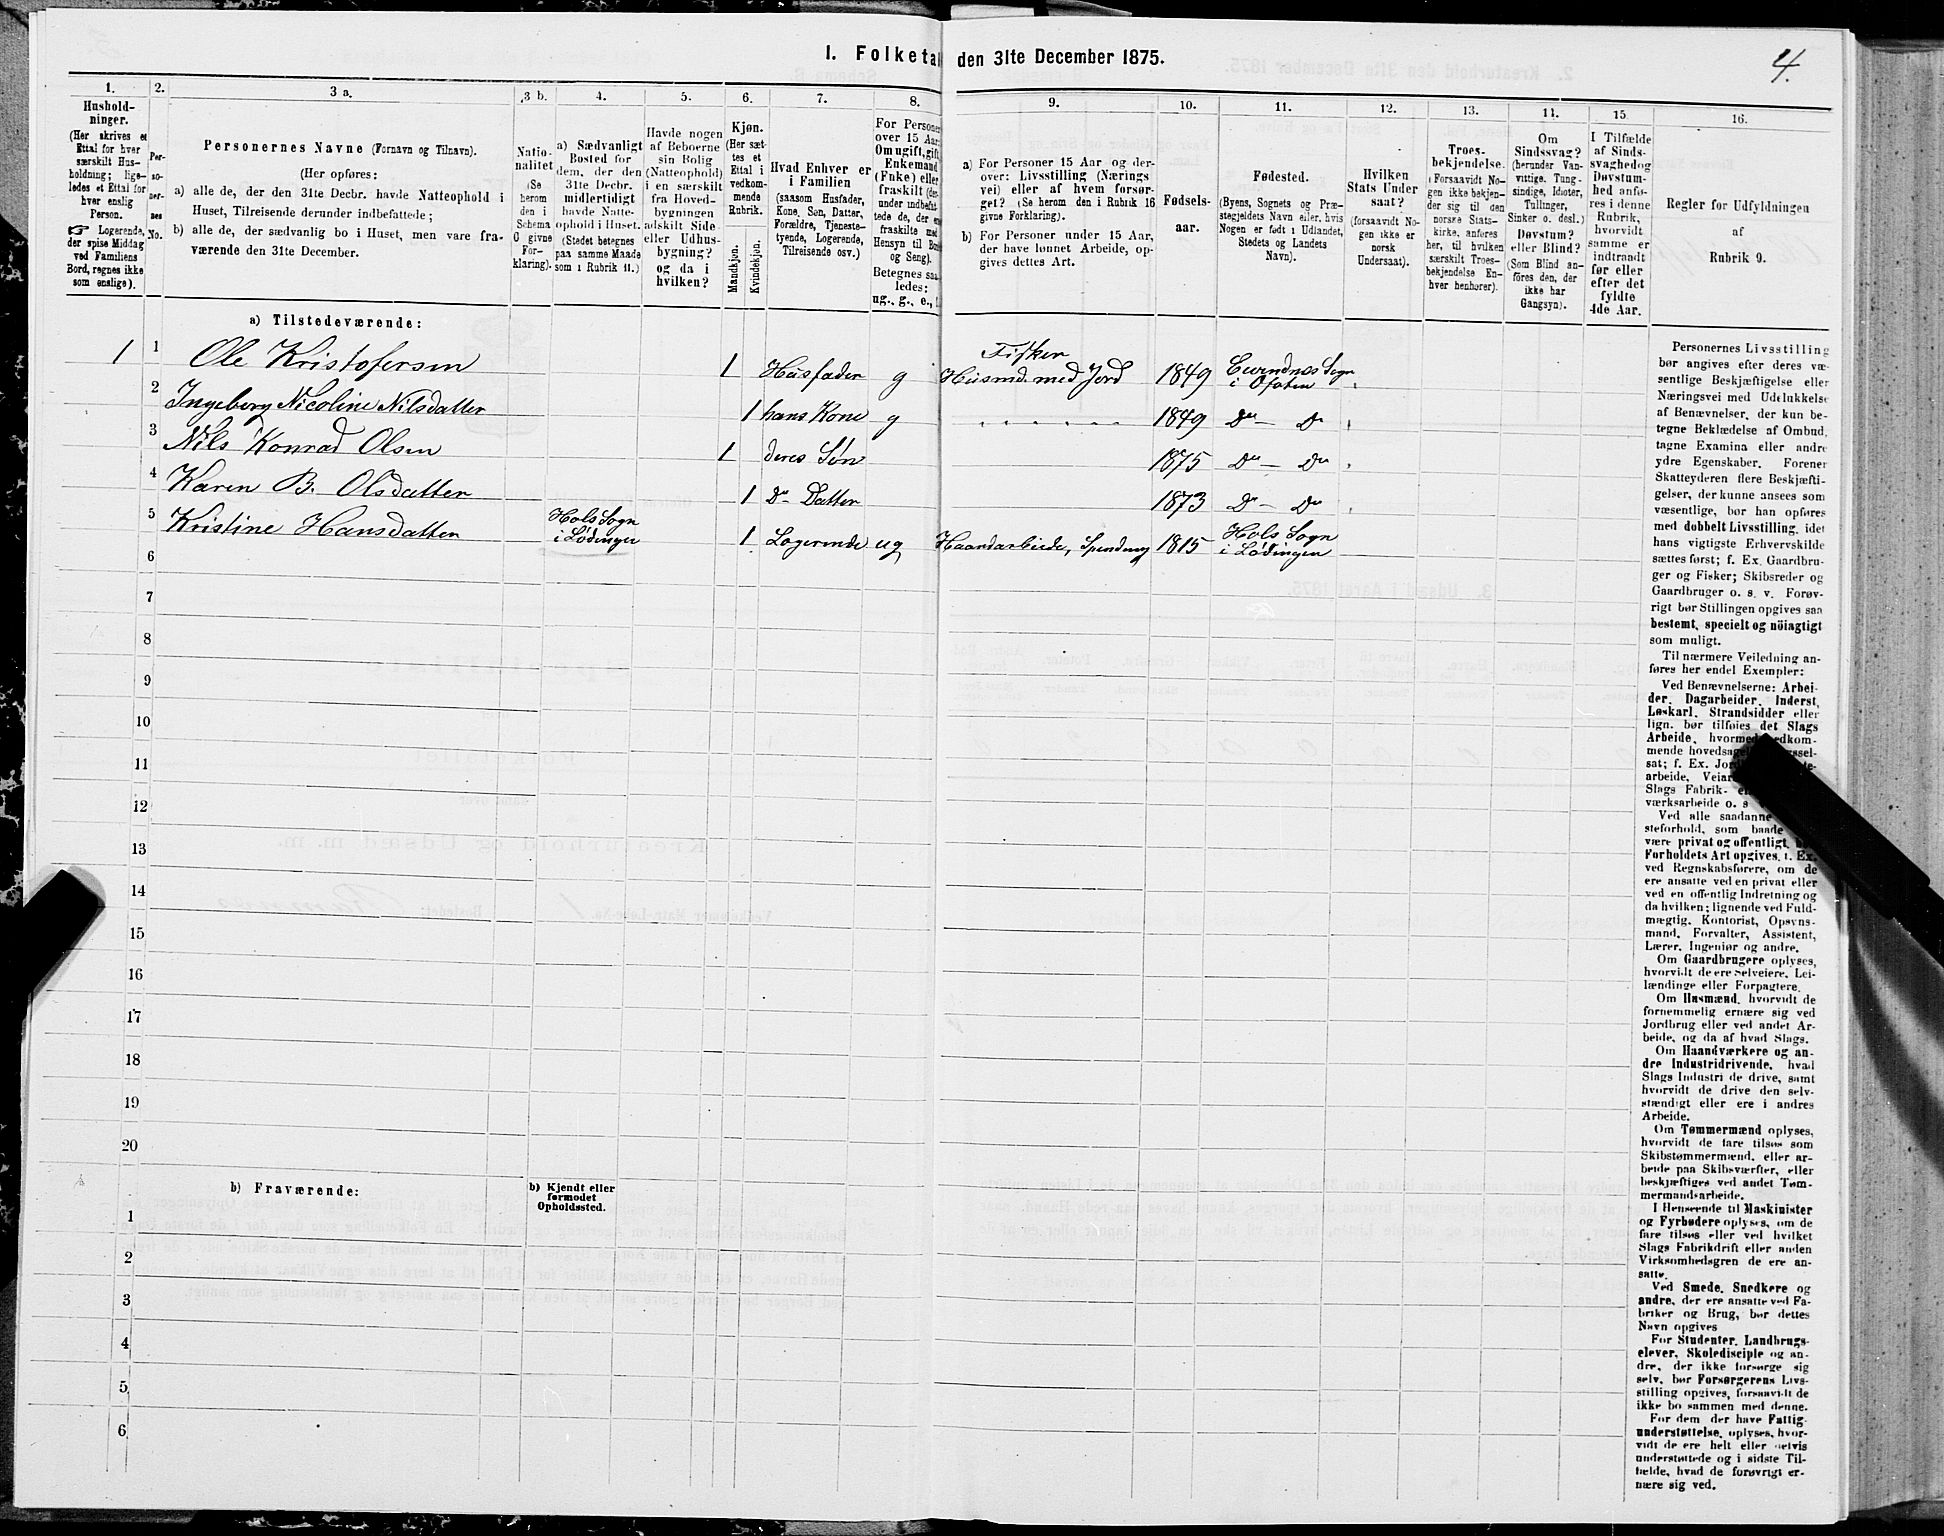 I. Folketal den 31te December 1875.
4.
1.
Hushold-
ninger.
(Her skrives et
Ettal for hver
særskilt Hus-
holdning; lige-
ledes et Ettal for
hver enslig
Person.
☞ Logerende,
der spise Middag
ved Familiens
Bord, regnes ikke
som enslige).
2.
Per-
so-
ner-
nes
No.
3 a.
Personernes Navne (Fornavn og Tilnavn).
(Her opføres:
a) alle de, der den 31te Decbr. havde Natteophold i
Huset, Tilreisende derunder indbefattede;
b) alle de, der sædvanlig bo i Huset, men vare fra-
værende den 31te December.
3 b.
Natio-
nalitet
(Se
herom
den i
Schema
O givne
For-
klaring).
4.
a) Sædvanligt
Bosted for
dem, der den
31te Decbr.
midlertidigt
havde Natte-
ophold i Huset.
(Stedet betegnes
paa samme Maade
som i Rubrik 11.)
5.
Havde nogen
af Beboerne
sin Bolig
(Natteophold)
i en særskilt
fra Hoved-
bygningen
adskilt Side-
eller Udhus-
bygning?
og da i
hvilken?
6.
Kjøn.
(Her sæt-
tes et
Ettal i
vedkom-
mende
Rubrik.
Mandkjøn.
Kvindekjøn.
7.
Hvad Enhver er
i Familien
(saasom Husfader,
Kone, Søn, Datter,
Forældre, Tjeneste-
tyende, Logerende,
Tilreisende osv.)
8.
For Personer
over 15 Aar:
Om ugift, gift,
Enkemand
(Enke) eller
fraskilt
og Seng).
Betegnes saa-
ledes:
ug., g., e.,
9.
a) For Personer 15 Aar og der-
over: Livsstilling (Nærings
vei) eller af hvem forsør-
get? (Se herom den i Rubrik 16
givne Forklaring).
b) For Personer under 15 Aar,
der have lønnet Arbeide, op-
gives dettes Art.
10.
Fødsels-
aar.
11.
Fødested.
(Byens, Sognets og Præ-
stegjeldets Navn eller, hvis
Nogen er født i Udlandet,
Stedets og Landets
Navn).
12.
Hvilken
Stats Under
saat?
(forsaavidt No-
gen ikke er
norsk
Undersaat).
13.
Troes-
bekjendelse.
(Forsaavidt No-
gen ikke bekjen-
der sig til den
norske Stats-
kirke, anføres
her, til hvilken
særskilt Troes-
bekjendelse En-
hver henhører).
14.
Om
Sindssvag?
(herunder Van-
vittige, Tung-
sindige, Idioter,
Tullinger,
Sinker o. desl.)
Døvstum?
eller Blind?
(Som Blind an-
føres den, der
ikke har
Gangsyn).
15
I Tilfælde
af Sinds-
svaghed og
Døvstum-
hed anfø-
res i denne
Rubrik,
hvorvidt
samme er
indtraadt
før eller
efter det
fyldte
4de Aar.
16.
Regler for Udfyldningen
af
Rubrik 9.
a) Tilstedeværende:
1 1 Ole Kristofersen 1 Husfader g Fisker
Husmd. med Jord 1849 Evendnes Sogn
i Ofoten
2 Ingeborg Nicoline Nilsdatter 1 hans Kone g 1849 Do — Do
3 Nils Konrad Olsen 1 deres Søn 1875 Do — Do
4 Karen B. Olsdatter 1 Do Datter 1873 Do — Do
5 Kristine Hansdatter Hols Sogn
i Lødingen 1 Logerende ug Haandarbeide, Spinding 1815 Hols Sogn
i Lødingen
6
7
8
9
10
11
12
13
14
15
16
17
18
19
20
b) Fraværende:
b) Kjendt eller
formodet
Opholdssted.
1
2
3
4
5
6
Personernes Livsstilling
bør angives efter deres væ-
sentlige Beskjæftigelse eller
Næringsvei med Udelukkelse
af Benævnelser, der kun be-
tegne Beklædelse af Ombud,
tagne Examina eller andre
ydre Egenskaber. Forener
Skatteyderen flere Beskjæfti-
gelser, der kunne ansees som
væsentlige, bør han opføres
med dobbelt Livsstilling, idet
hans vigtigste Erhvervskilde
sættes først; f. Ex. Gaardbru-
ger og Fisker; Skibsreder og
Gaardbruger o. s. v. Forøv-
rigt bør Stillingen opgives saa
bestemt, specielt og nöiagtigt
som muligt.
Til nærmere Veiledning an-
føres her endel Exempler:
Ved Benævnelserne: Arbei-
der, Dagarbeider, Inderst,
Løskarl, Strandsidder eller
lign. bør tilføies det Slags
Arbeide, hvormed vedkom-
mende hovedsagelig
sat; f. Ex.
arbeide,
Slags Fabrik-
værksarbeide o. s
Ved alle saadanne
steforhold, som baade
være privat og offentligt,
Forholdets Art opgives, f. Ex.
ved Regnskabsførere, om de
ere ansatte ved en privat eller
ved en offentlig Indretning og
da hvilken; lignende ved Fuld-
mægtig, Kontorist, Opsyns-
mand, Forvalter, Assistent,
Lærer, Ingeniør og andre.
Om Gaardbrugere oplyses,
hvorvidt de ere Selveiere, Lei-
lændinge eller Forpagtere.
Om Husmænd, hvorvidt de
fornemmelig ernære sig ved
Jordbrug eller ved andet Ar-
beide, og da af hvad Slags.
Om Haandværkere og an-
dre Industridrivende, hvad
Slags Industri de drive, samt
hvorvidt de drive den selv-
stændigt eller ere i andres
Arbeide.
Om Tømmermænd oplyses,
hvorvidt de fare tilsøs som
Skibstømmermænd, eller ar-
beide paa Skibsværfter, eller
beskjæftiges ved andet Tøm-
mermandsarbeide.
I Henseende til Maskinister
og Fyrbødere oplyses, om de
fare tilsøs eller ved hvilket
Slags Fabrikdrift eller anden
Virksomhedsgren de ere an-
satte.
Ved Smede, Snedkere og
andre, der ere ansatte ved Fa-
briker og Brug, bør dettes
Navn opgives
For Studenter, Landbrugs-
elever, Skoledisciple og an-
dre, der ikke forsørge sig
selv, bør Forsørgerens Livs-
stilling opgives, forsaavidt de
ikke bo sammen med denne.
For dem der have Fattig-
understøttelse, oplyses, hvor-
vidt de ere helt eller delvis
understøttede og i sidste Til-
fælde, hvad de forøvrigt er-
nære sig ved.